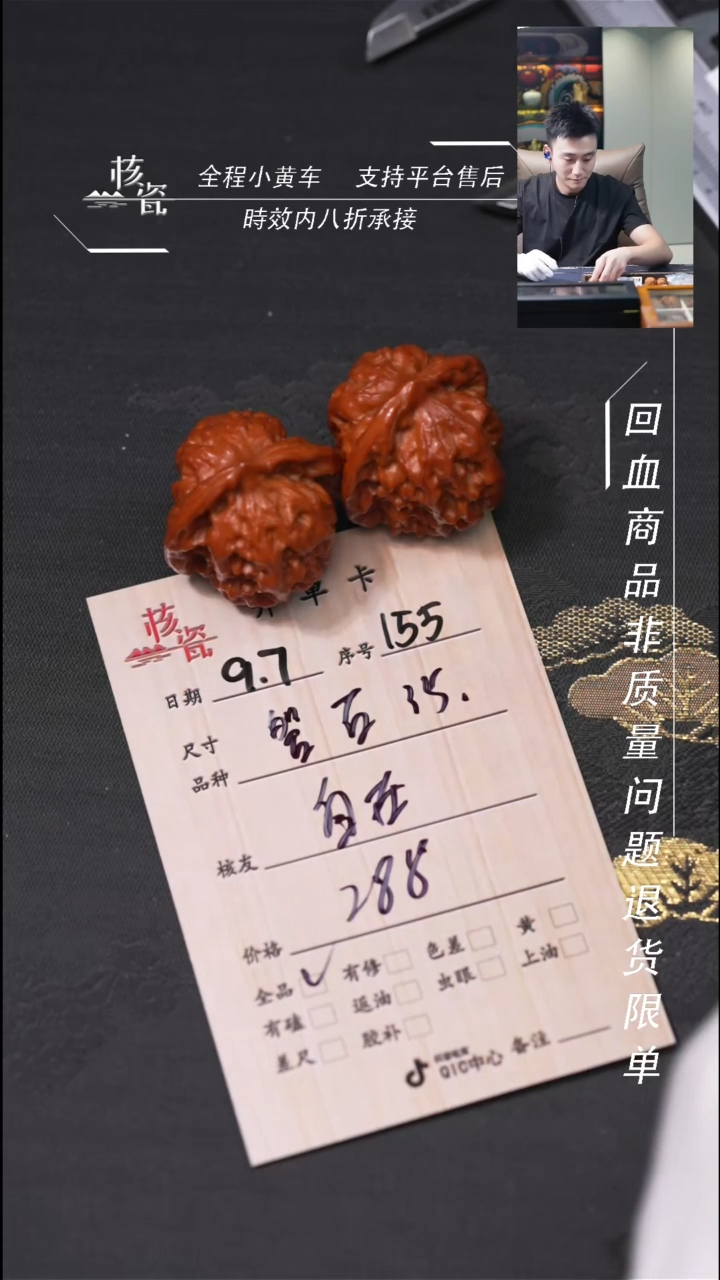 核瓷
全程小黄车 支持平台售后
時效内八折承接
回血商品非质量问题退货限单
单卡
核瓷
日期 9.7 序号 155
尺寸
品种 百 35.
核友 自在
价格 288
全品 ✓ 有修 色差 黄
有磕 返油 虫眼 上油
差尺 胶补
QIC中心 备注